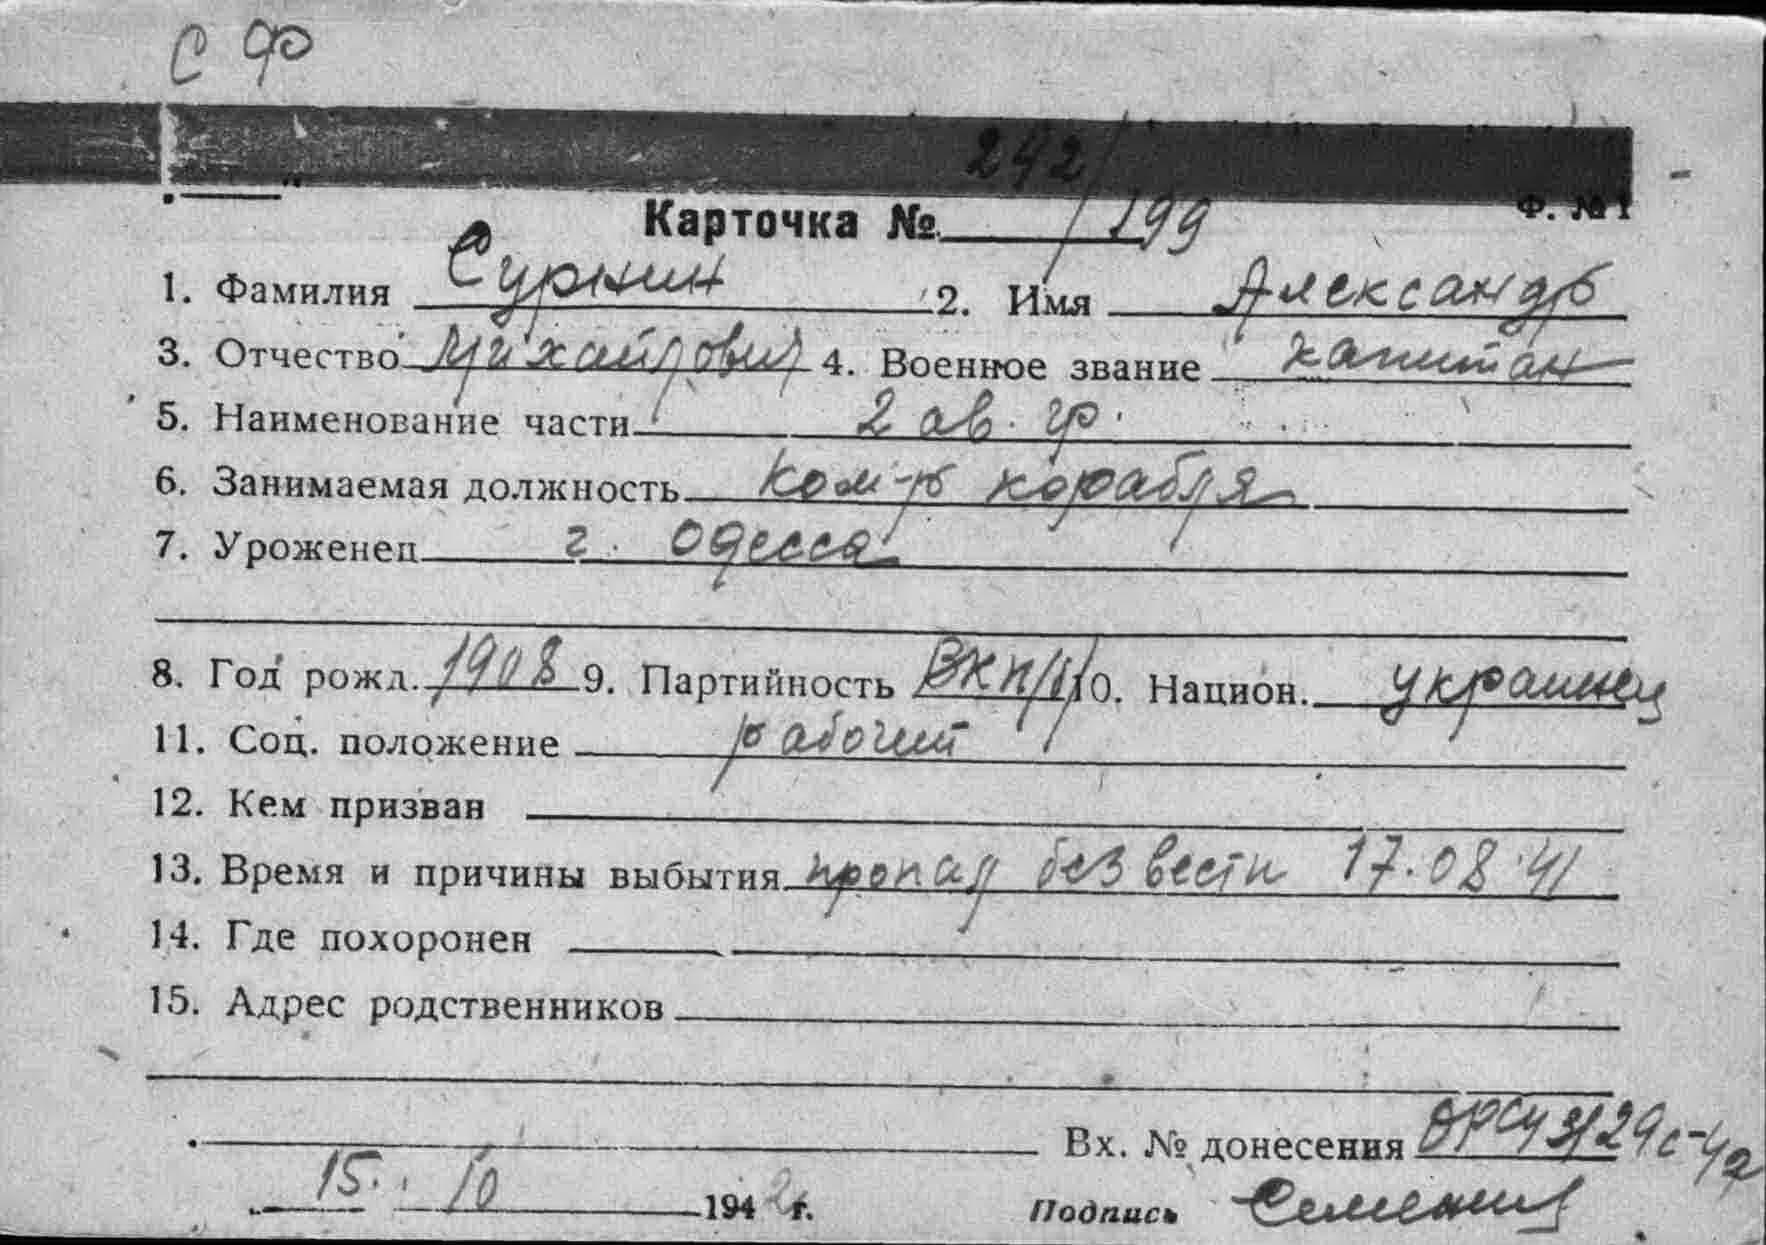 СФ
242/199
Карточка № Ф. № 1
1. Фамилия Сурнин 2. Имя Александр
3. Отчество Михайлович 4. Военное звание капитан
5. Наименование части 2 ав. гр.
6. Занимаемая должность ком-р корабля
7. Уроженец г. Одесса
8. Год рожд. 1908 9. Партийность ВКП/б/ 10. Национ. украинец
11. Соц. положение рабочий
12. Кем призван
13. Время и причины выбытия пропал без вести 17.08.41
14. Где похоронен
15. Адрес родственников
Вх. № донесения
15. 10 1942 г. Подпись